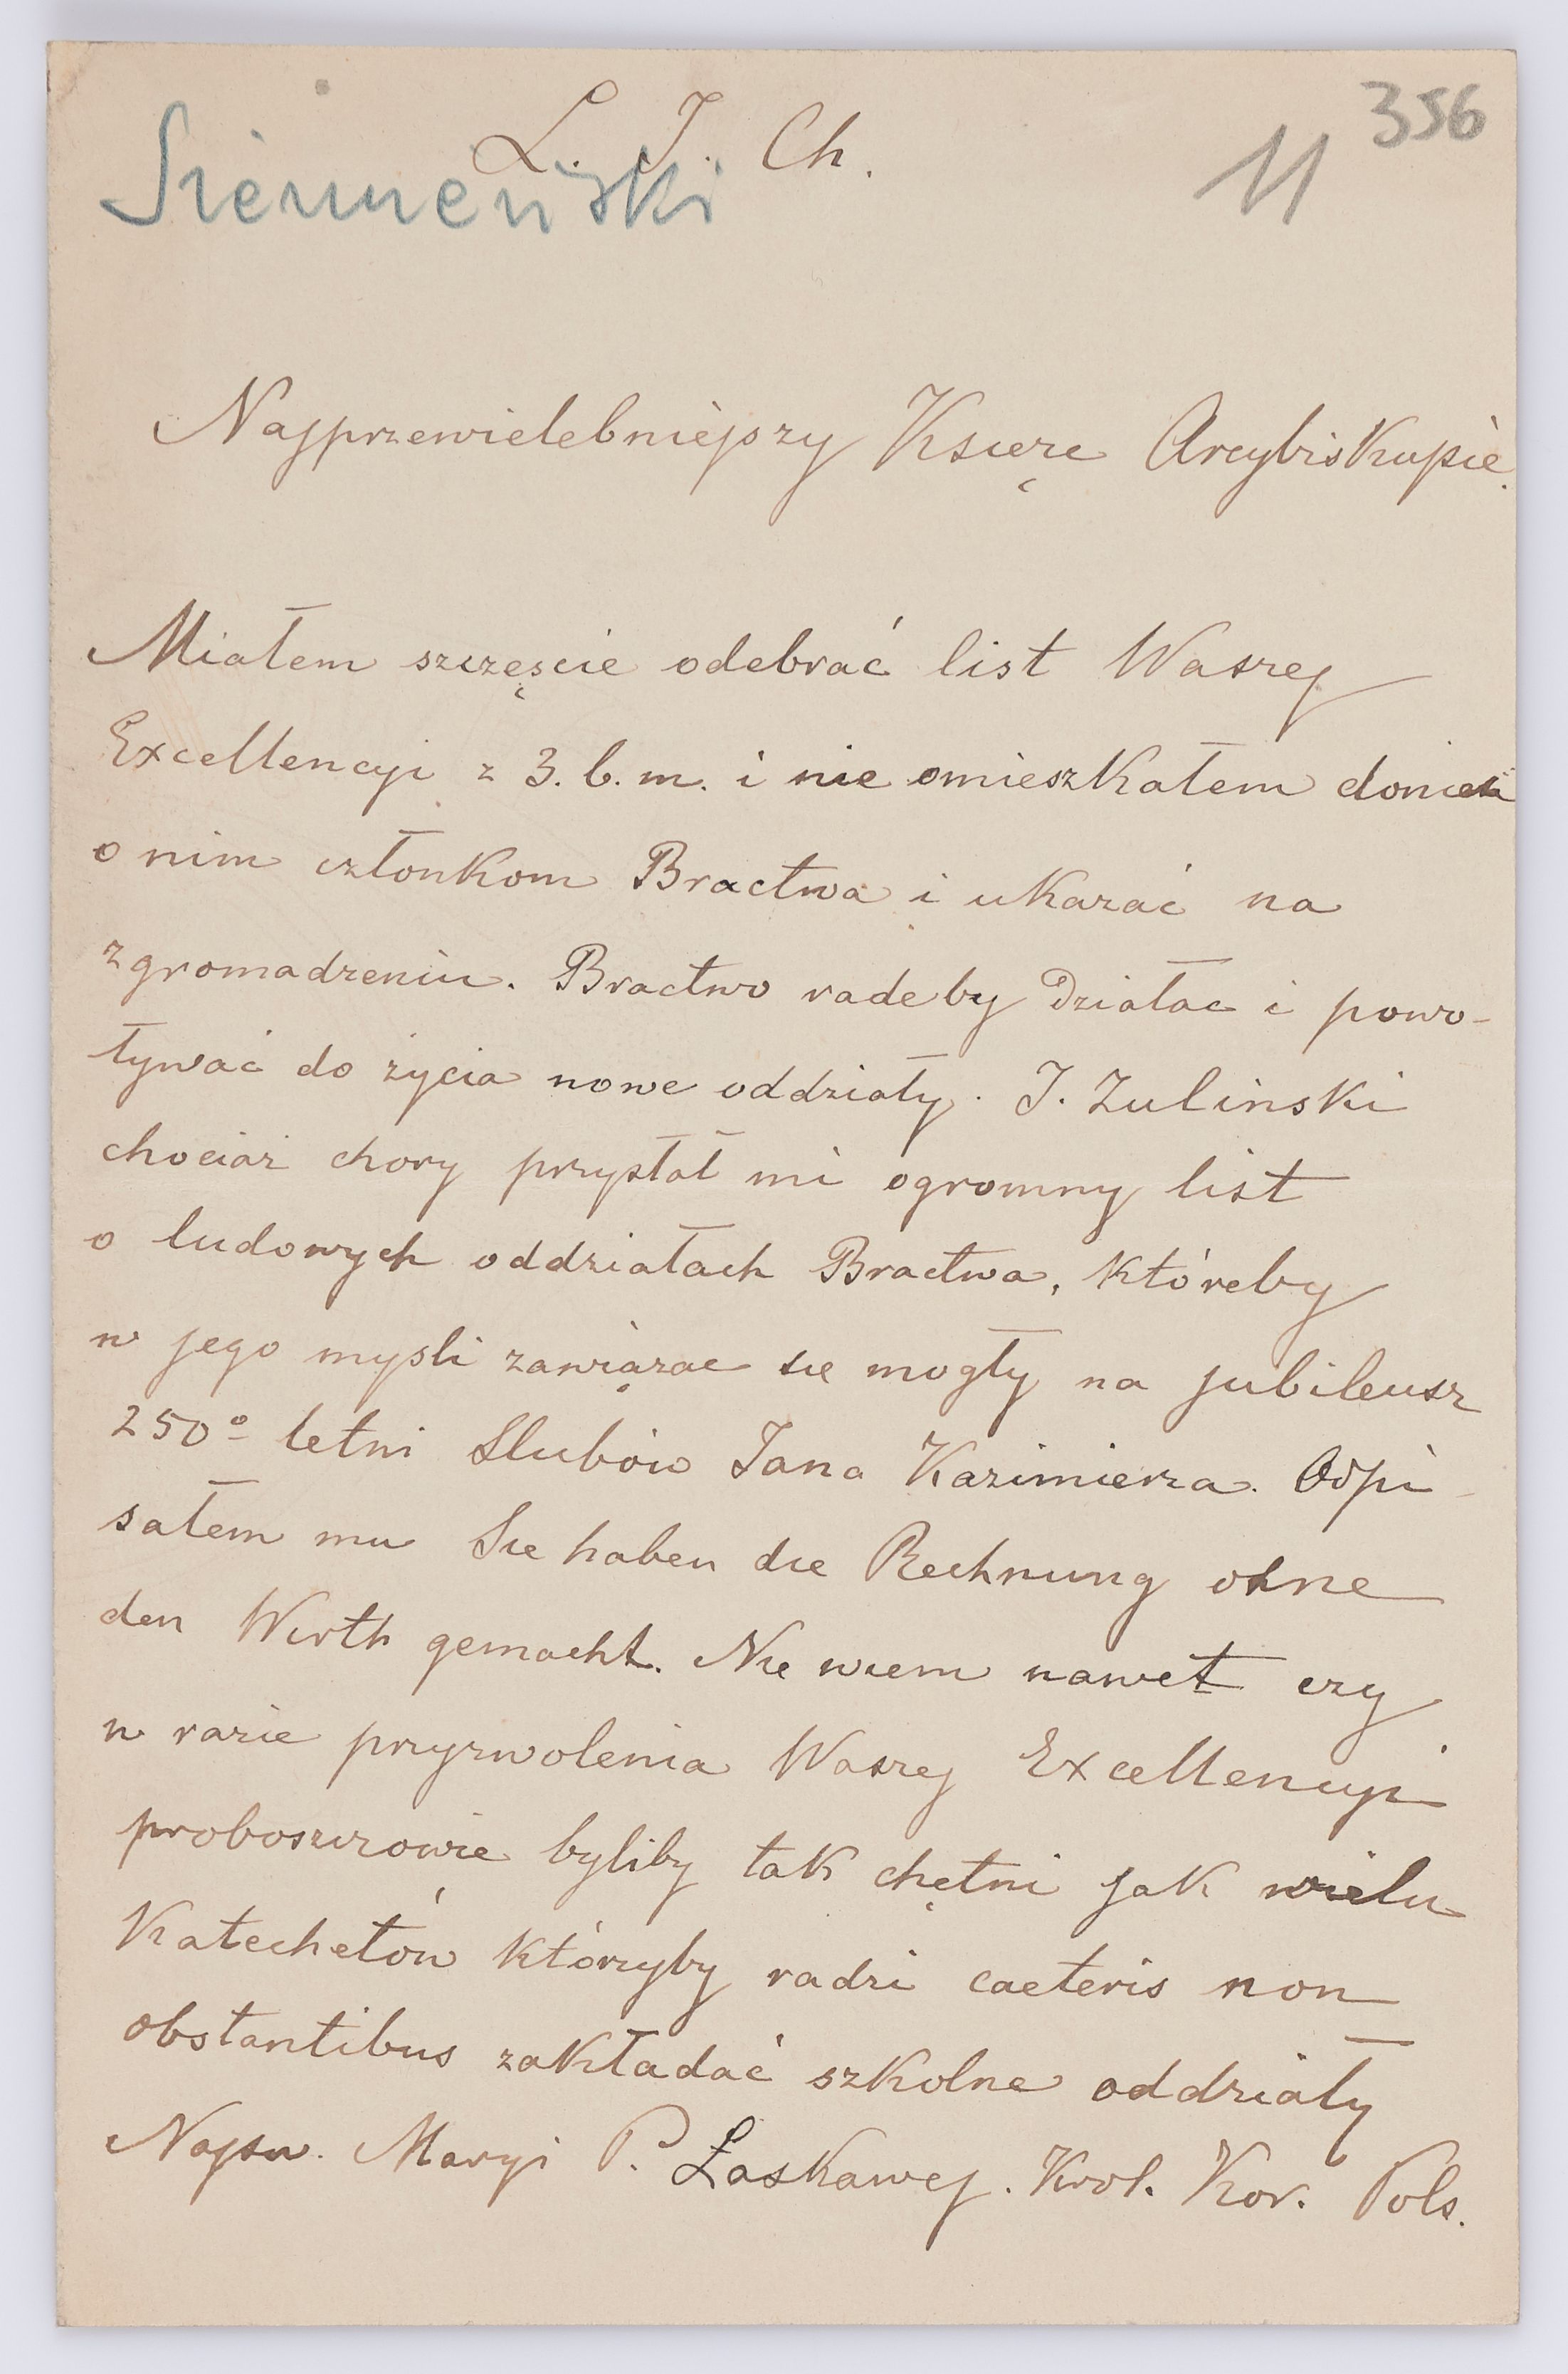 356
11
L. J. Ch.
Siemieński
Najprzewielebniejszy Księże Arcybiskupie.
Miałem szczęście odebrać list Waszej
Excellencyi z 3. b. m. i nie omieszkałem donieść
o nim członkom Bractwa i ukazać na
zgromadzeniu. Bractwo radeby działac i powo-
ływać do życia nowe oddziały. J. Zulinski
chociaż chory przysłał mi ogromny list
o ludowych oddziałach Bractwa, któreby
w jego mysli zawiązac się mogły na jubileusz
250º letni Slubów Jana Kazimierza. Odpi-
sałem mu Sie haben die Rechnung ohne
den Wirth gemacht. Nie wiem nawet czy
w razie przyzwolenia Waszej Excellencyi
proboszczowie byliby tak chętni jak wielu
Katechetów którzyby radzi caeteris non
obstantibus zakładać szkolne oddziały
Najsw. Maryi P. Łaskawej. Krol. Kor. Pols.